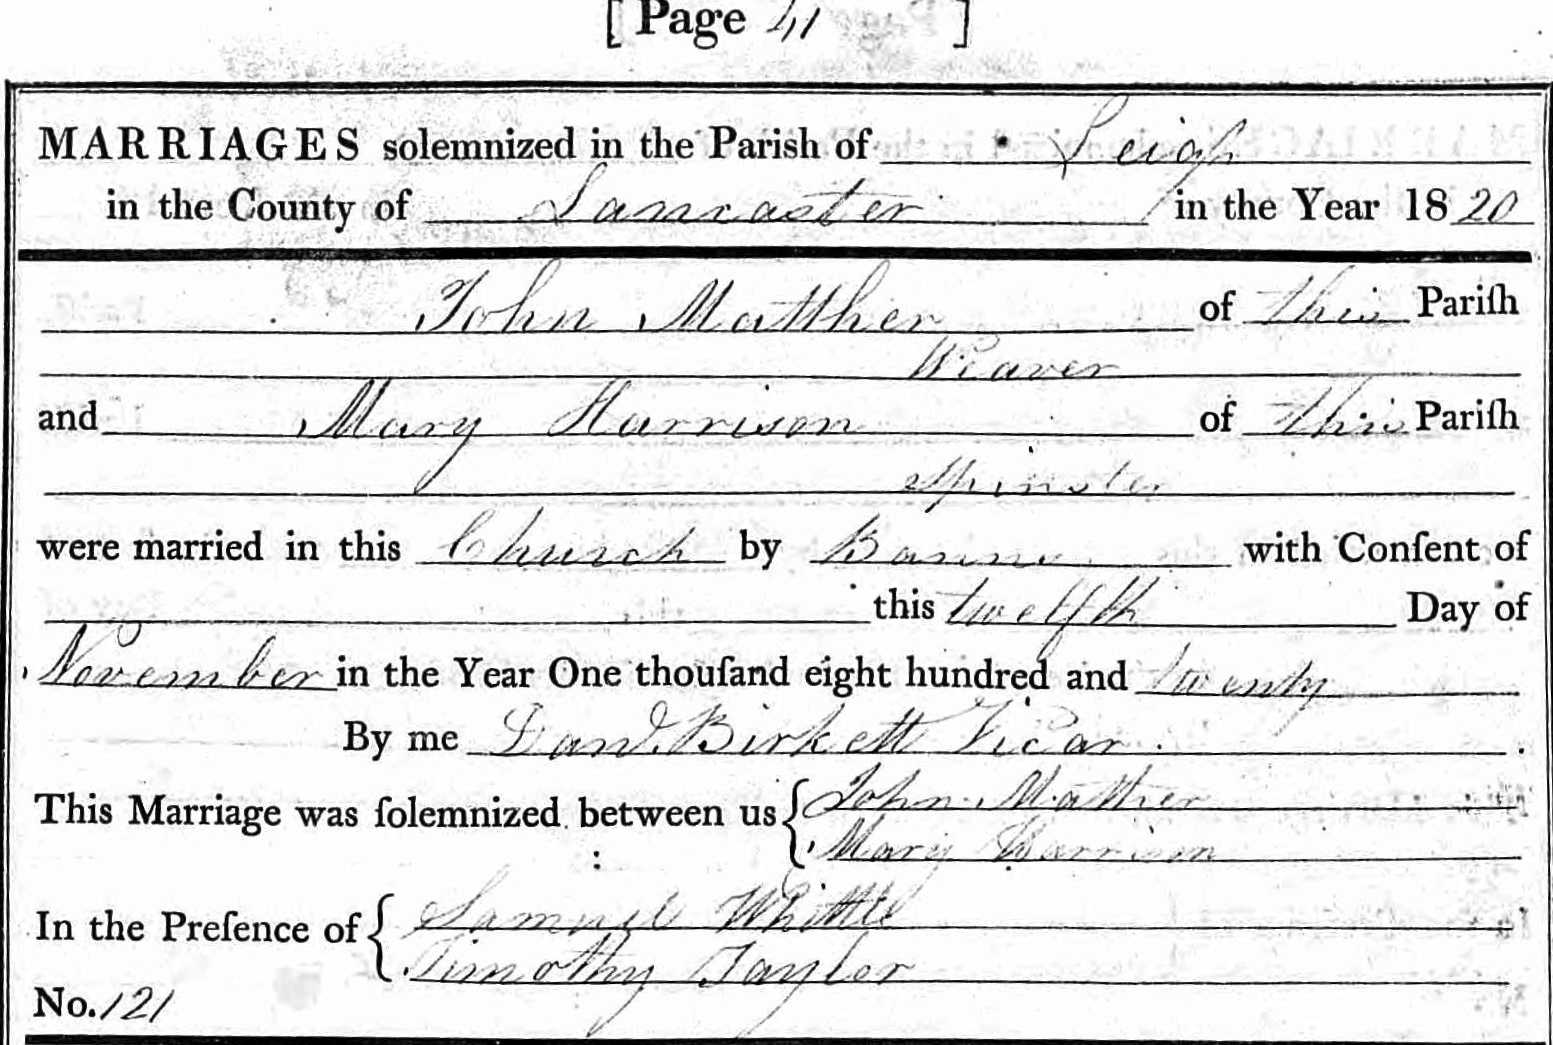 [ Page 41 ]
MARRIAGES solemnized in the Parish of Leigh
in the County of Lancaster in the Year 1820
John Matther of this Pariſh
Weaver
and Mary Harrison of this Pariſh
Spinster
were married in this Church by Banns with Conſent of
this twelfth Day of
November in the Year One thouſand eight hundred and twenty
By me Danl. Birkett Vicar.
This Marriage was ſolemnized between us { John Mather
Mary Harrison
In the Preſence of { Samuel Whittle
Timothy Taylor
No. 121